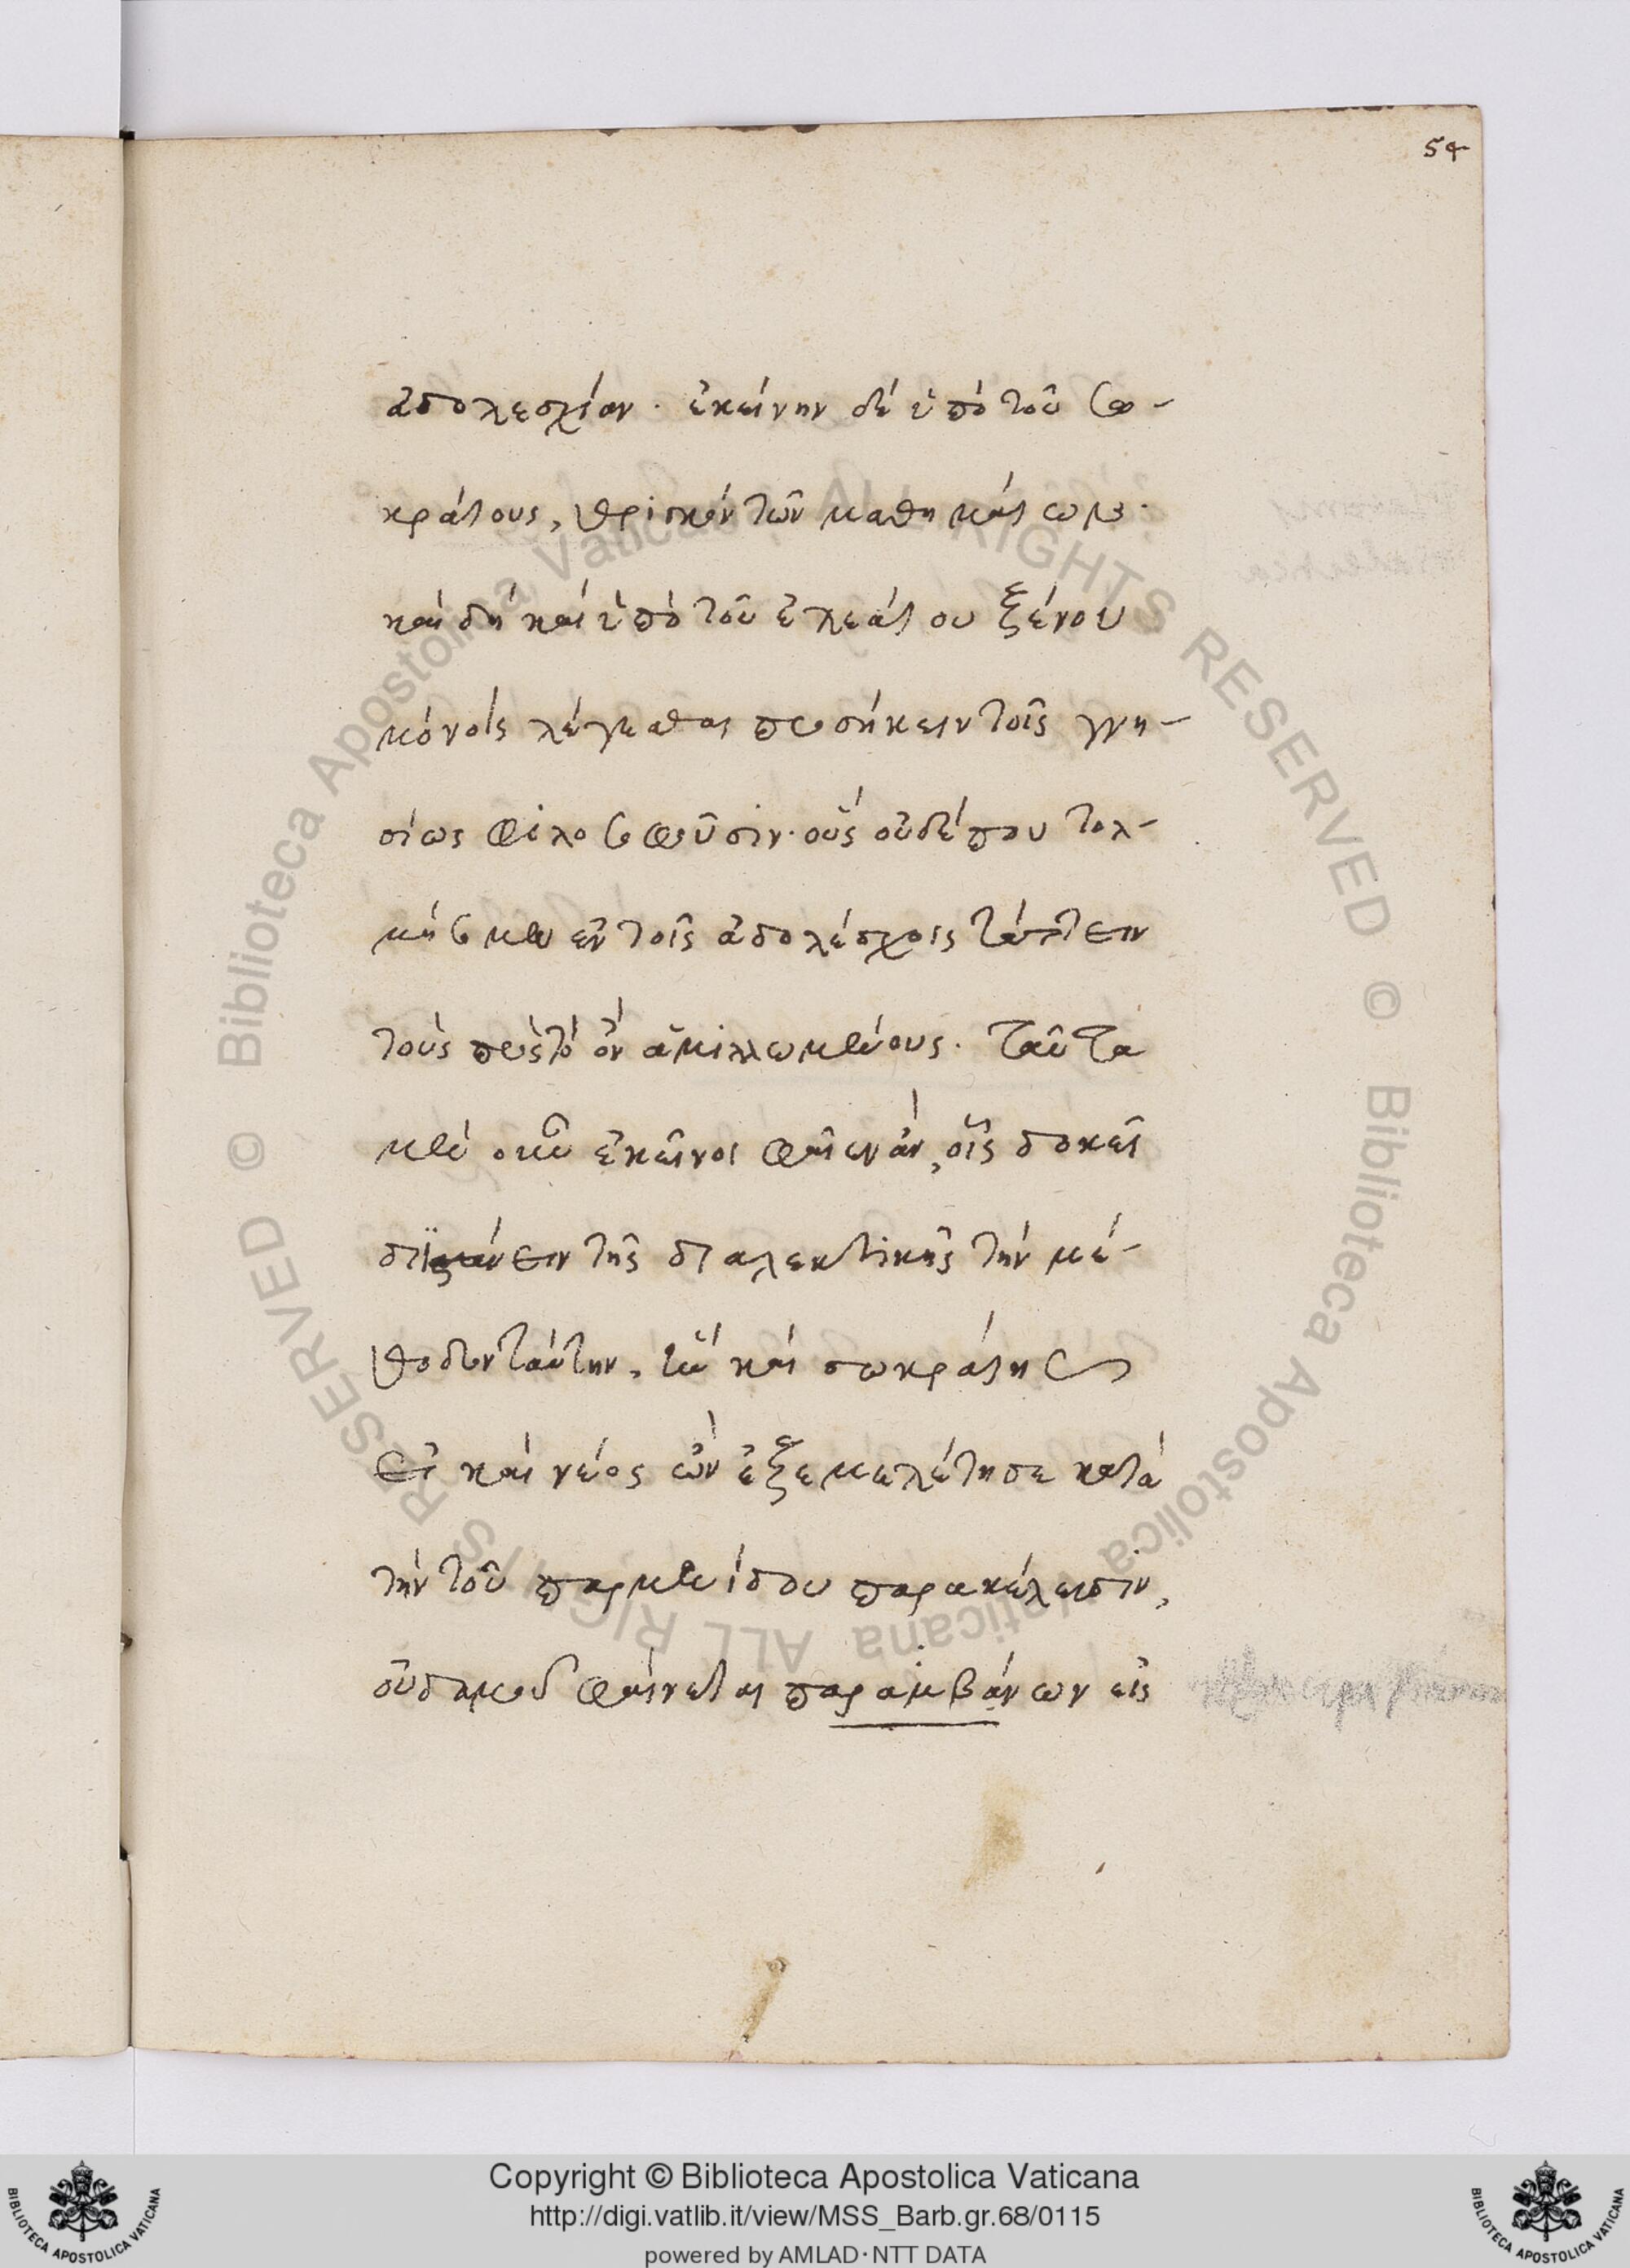 54
ἀδολεσχίαν. ἐκείνην δὲ ὑπὸ τοῦ Σω-
κράτους, θριγκὸν τῶν μαθημάτων.
καὶ δὴ καὶ ὑπὸ τοῦ ἐλεάτου ξένου
μόνοις λέγεσθαι προσήκειν τοῖς γνη-
σίως φιλοσοφοῦσιν. οὓς οὐδέπου τολ-
μήσομεν ἐν τοῖς ἀδολέσχοις τάττειν
τοὺς πρὸς τὸ ὂν ἁμιλλωμένους. ταῦτα
μὲν οὖν ἐκεῖνοι φαῖεν ἂν, οἷς δοκεῖ
τῆς διαλεκτικῆς τὴν μέ-
θοδον ταύτην, ἣν καὶ σωκράτης
εἰ καὶ νέος ὢν ἐξεμελέτησε κατὰ
τὴν τοῦ παρμενίδου παρακέλευσιν,
οὐδαμοῦ φαίνεται παραμβάνων εἰς
Copyright © Biblioteca Apostolica Vaticana
http://digi.vatlib.it/view/MSS_Barb.gr.68/0115
powered by AMLAD·NTT DATA
© Biblioteca Apostolica Vaticana ALL RIGHTS RESERVED
© Biblioteca Apostolica Vaticana ALL RIGHTS RESERVED
BIBLIOTECA APOSTOLICA VATICANA
BIBLIOTECA APOSTOLICA VATICANA